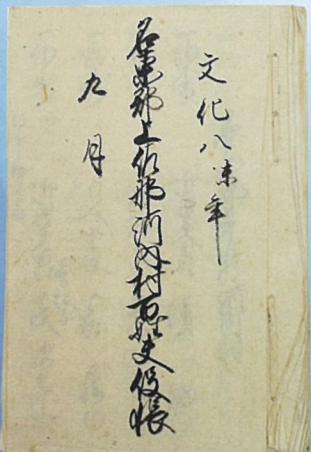 文化八未年
名東郡上佐那河内村百姓夫役帳
九月